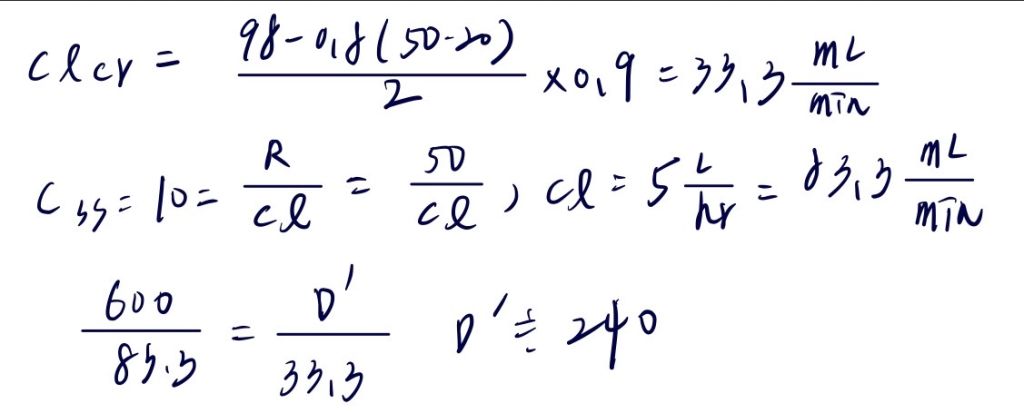 Clcr = \frac{98-0.8(50-20)}{2} \times 0.9 = 33.3 \frac{mL}{min}
Css = 10 = \frac{R}{Cl} = \frac{50}{Cl}, Cl = 5 \frac{L}{hr} = 83.3 \frac{mL}{min}
\frac{600}{83.3} = \frac{D'}{33.3} D' ≒ 240